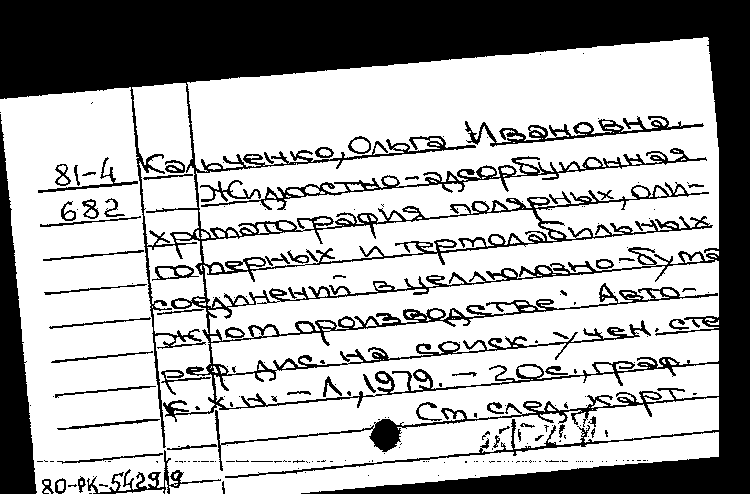 81-4 Кальченко, Ольга Ивановна.
682 Жидкостно-адсорбционная
хроматография полярных, оли-
гомерных и термолабильных
соединений в целлюлозно-бума
жном производстве: Авто-
реф. дис. на соиск. учен. сте
к.х.н. - Л., 1979. - 20с., граф.
См. след. карт.
80-РК-5429/9